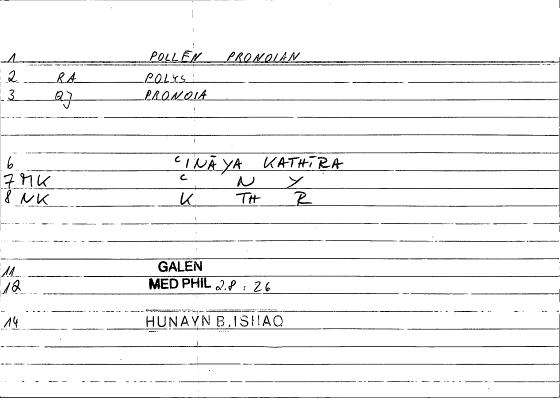 1 POLLĒN PRONOIAN
2 RA POLYS
3 QJ PRONOIA
6 ʿINĀYA KATHĪRA
7 MK ʿ N Y
8 NK K TH R
11 GALEN
12 MED PHIL 2.8 : 26
14 HUNAYN B.ISHAQ